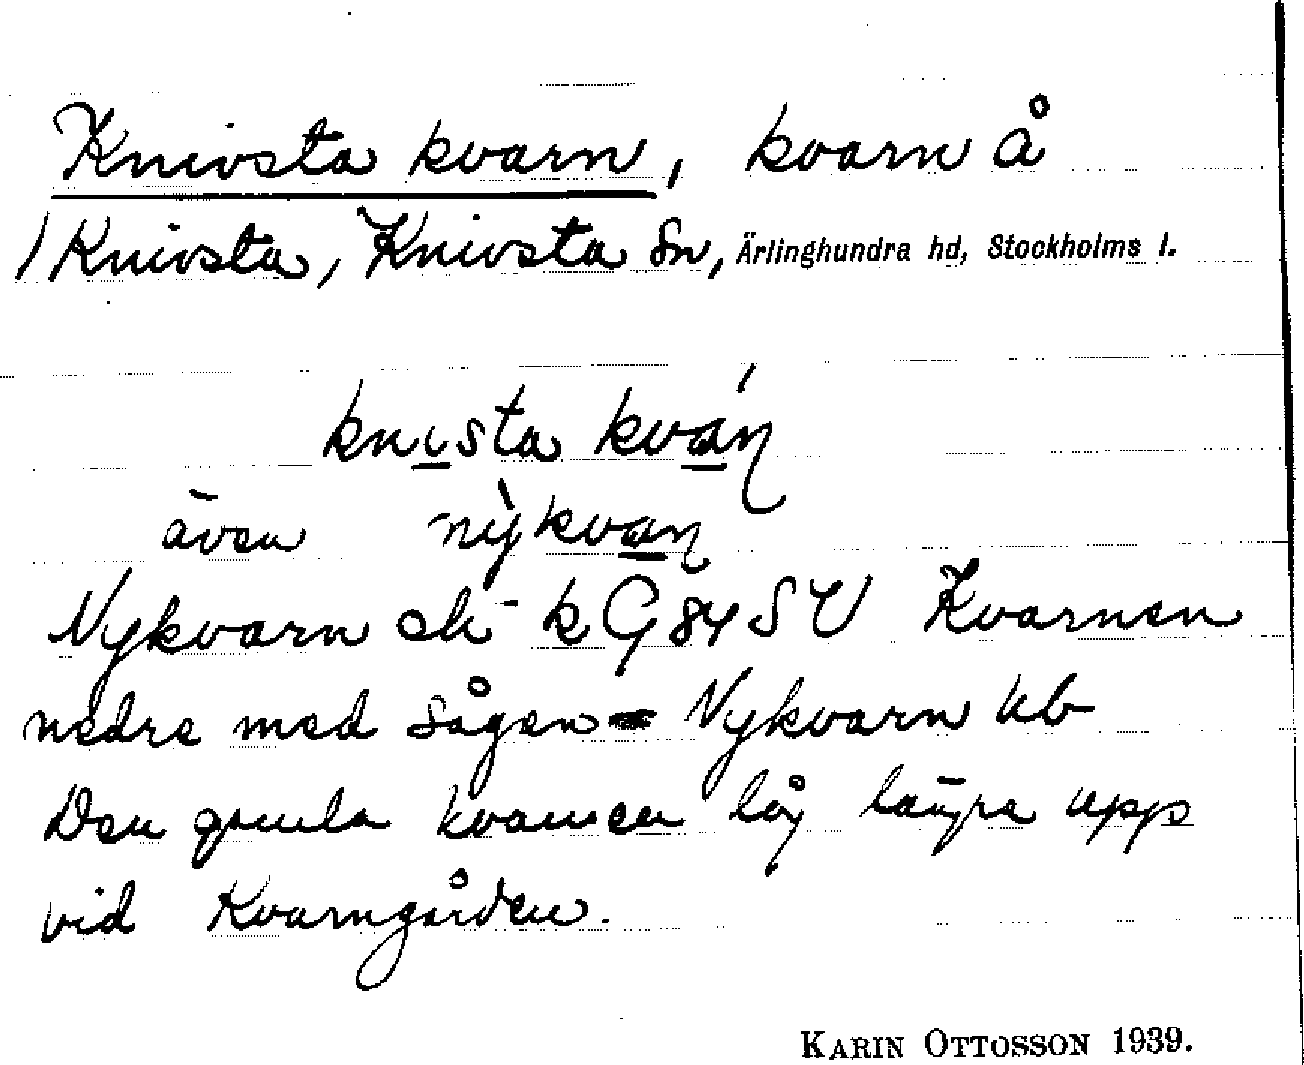 Knivsta kvarn, kvarn å
/Knivsta, Knivsta sn, Ärlinghundra hd, Stockholms l.
knista kván
även nykvaɳ
Nykvarn ek k G 84 SV Kvarnen
nedre med sågen = Nykvarn Ub
Den gamla kvarnen låg längre upp
vid Kvarngården.
KARIN OTTOSSON 1939.